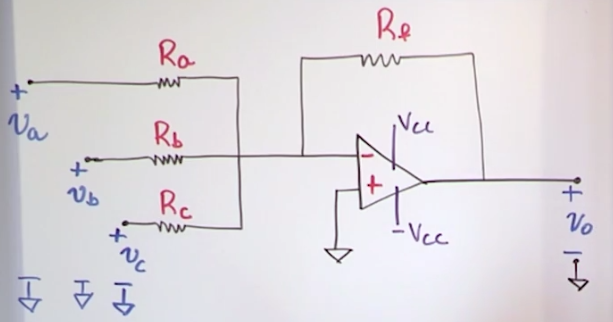 Ra
Rf
+
va
Rb
+
vb
Rc
+
vc
Vcc
-
+
-Vcc
+
vo
-
-
-
-